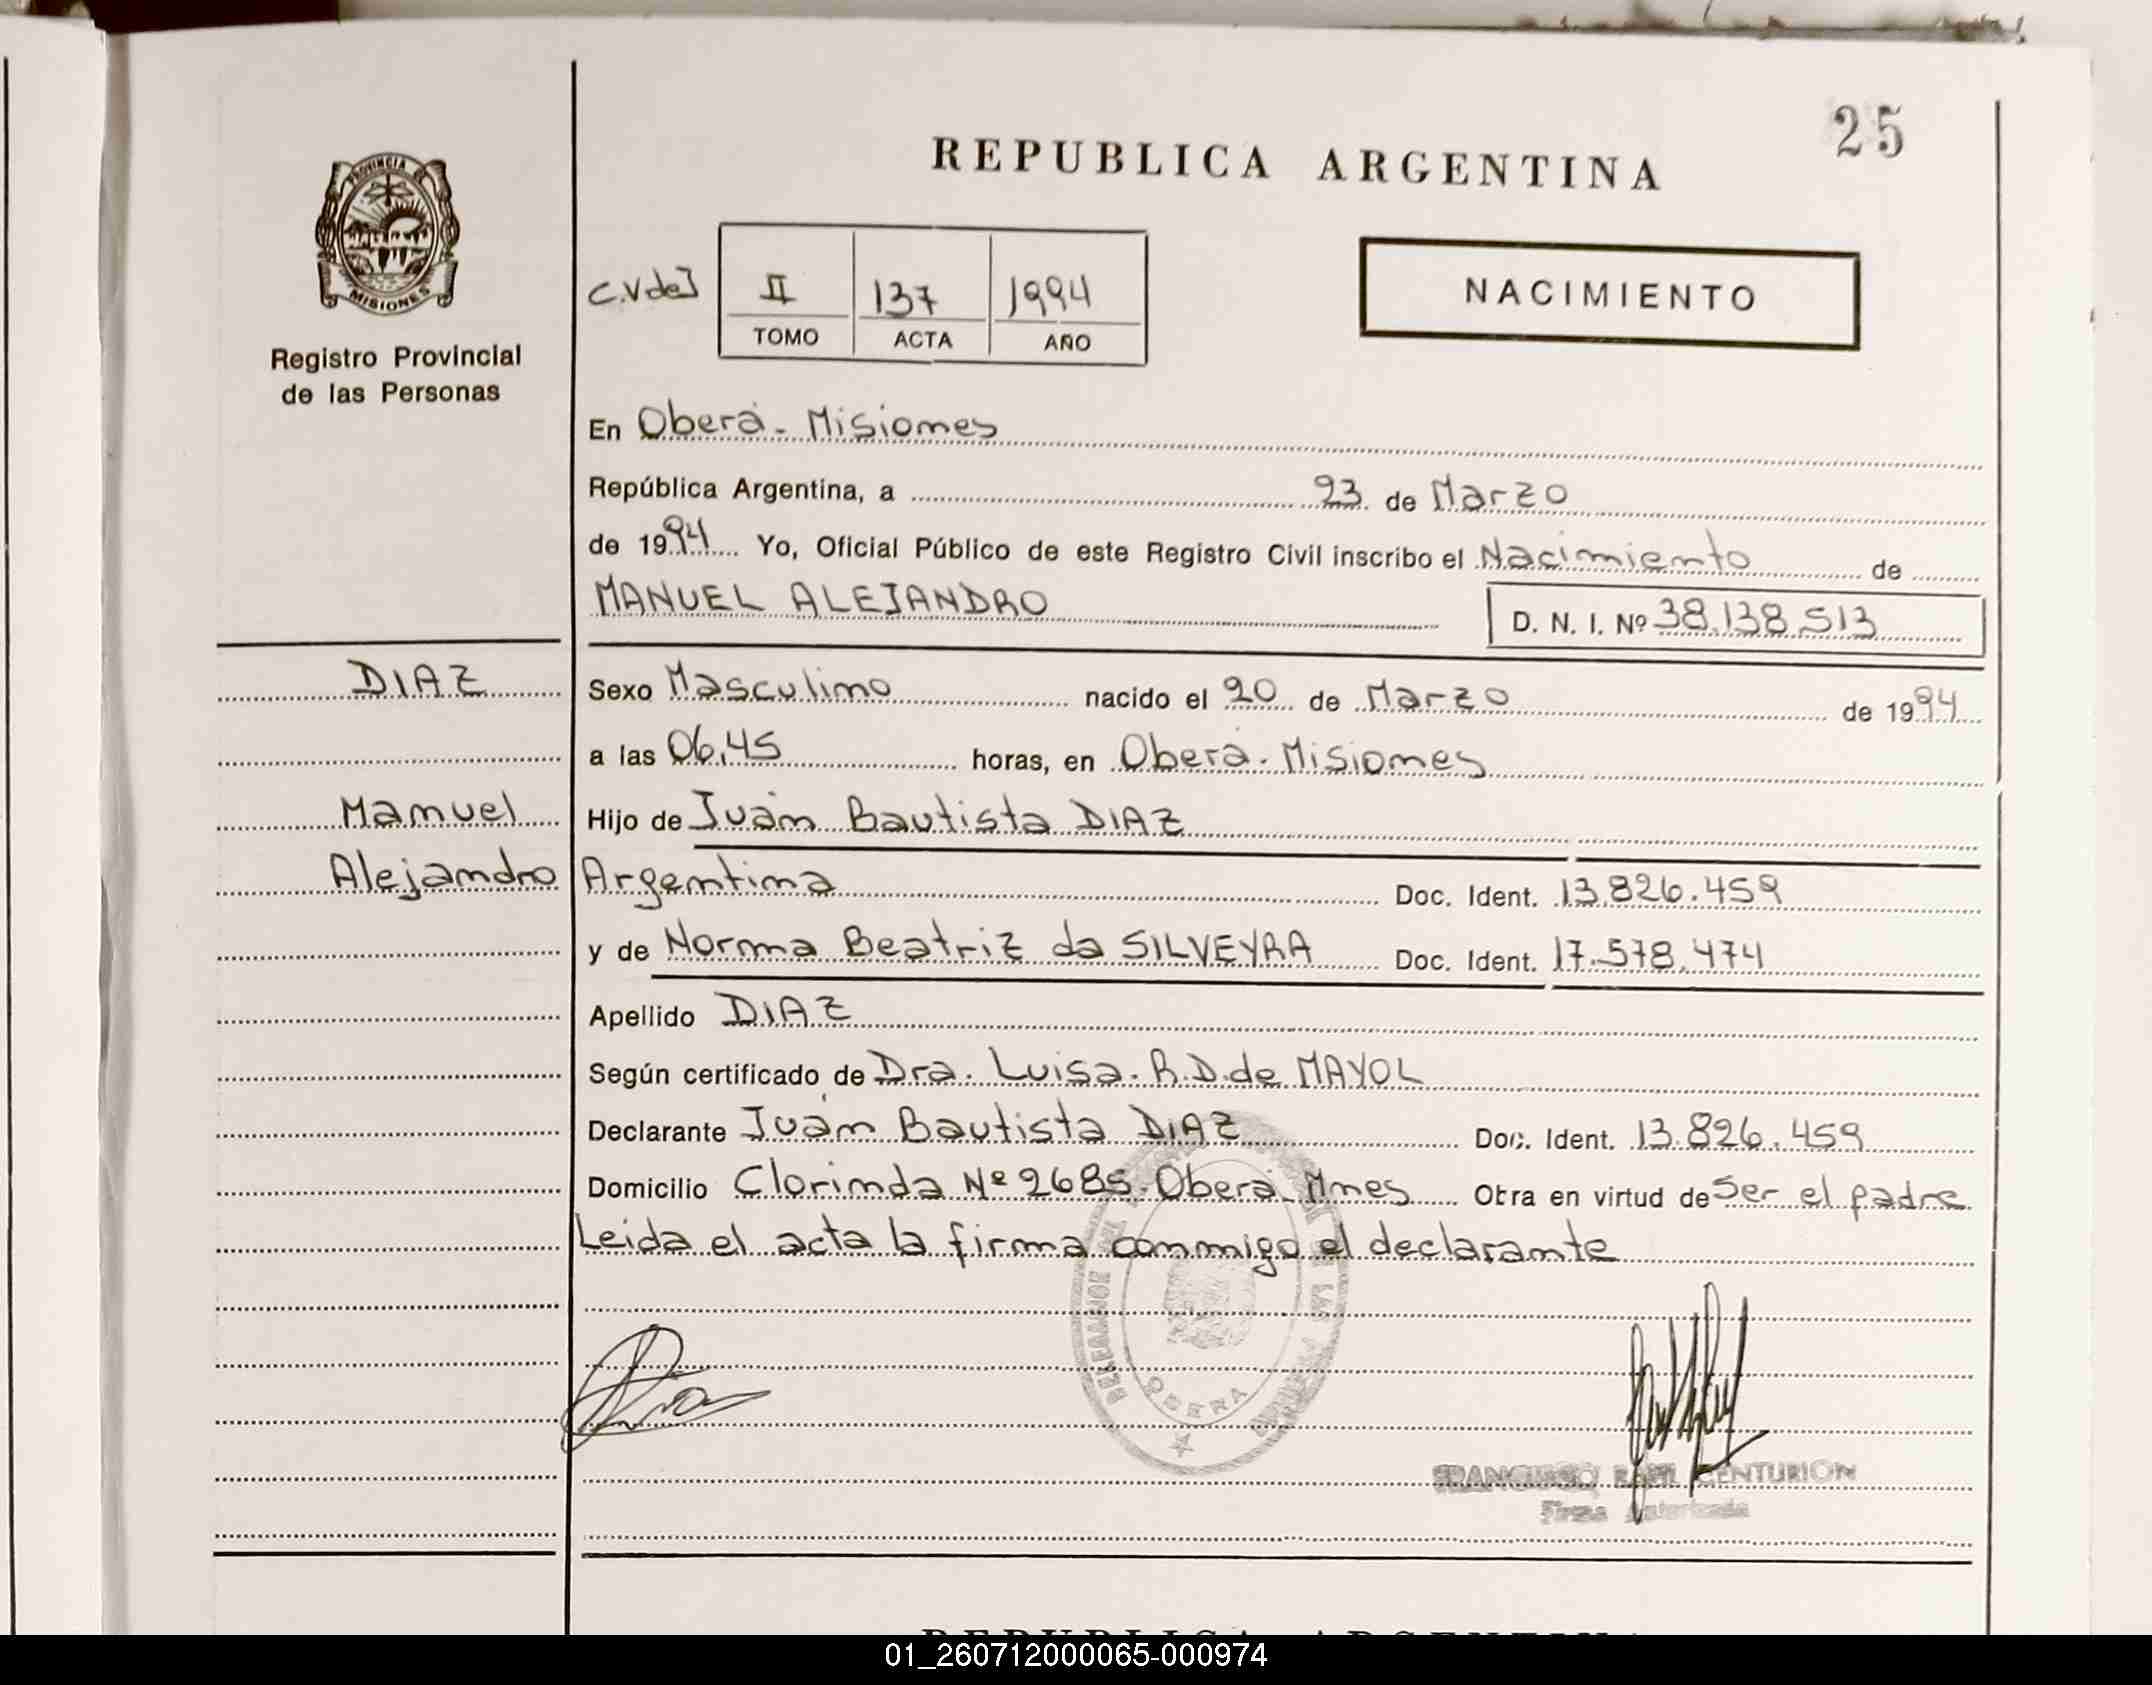 25
REPUBLICA ARGENTINA
PROVINCIA DE
MISIONES
Registro Provincial
de las Personas
C.V de J
II 137 1994
TOMO ACTA AÑO
NACIMIENTO
En Oberá - Misiones
República Argentina, a 23 de Marzo
de 1994 Yo, Oficial Público de este Registro Civil inscribo el Nacimiento de
MANUEL ALEJANDRO D. N. I. Nº 38.138.513
DIAZ
Manuel
Alejandro
Sexo Masculino nacido el 20 de Marzo de 1994
a las 06,45 horas, en Oberá - Misiones
Hijo de Juán Bautista DIAZ
Argentina Doc. Ident. 13.826.459
y de Norma Beatriz da SILVEYRA Doc. Ident. 17.578.474
Apellido DIAZ
Según certificado de Dra. Luisa. R.D. de MAYOL
Declarante Juán Bautista DIAZ Doc. Ident. 13.826.459
Domicilio Clorinda Nº 2685 - Oberá - Mnes Obra en virtud de Ser el padre
Leida el acta la firma conmigo el declarante
OBERA
CENTURION
Firma Autorizada
REPUBLICA ARGENTINA
01_260712000065-000974